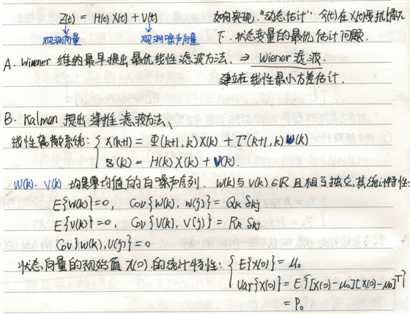 Z(t) = H(t)X(t) + V(t)
如何实现"动态估计" 今(t)在X(t)受扰情况
观测向量 观测噪声向量
下,状态变量的最优估计问题.
A. Winner 维纳最早提出最优线性滤波方法, ⇒ Wiener 滤波.
建立在线性最小方差估计.
B. Kalman 提出递推滤波方法、
线性离散系统: { X(k+1) = Φ(k+1,k)X(k) + Γ(k+1,k)W(k)
Z(k) = H(k)X(k) + V(k).
W(k)、V(k) 均是零均值的白噪声序列. W(k)与V(k)∈R 且相互独立,其统计特性:
E{W(k)}=0, Cov{W(k), W(j)} = Qk δkj
E{V(k)}=0, Cov{V(k), V(j)} = Rk δkj
Cov{W(k), V(j)}=0
状态向量的初始值X(0)的统计特性: { E{X(0)} = μ0
Var{X(0)} = E{[X(0)-μ0][X(0)-μ0]T}
= P0